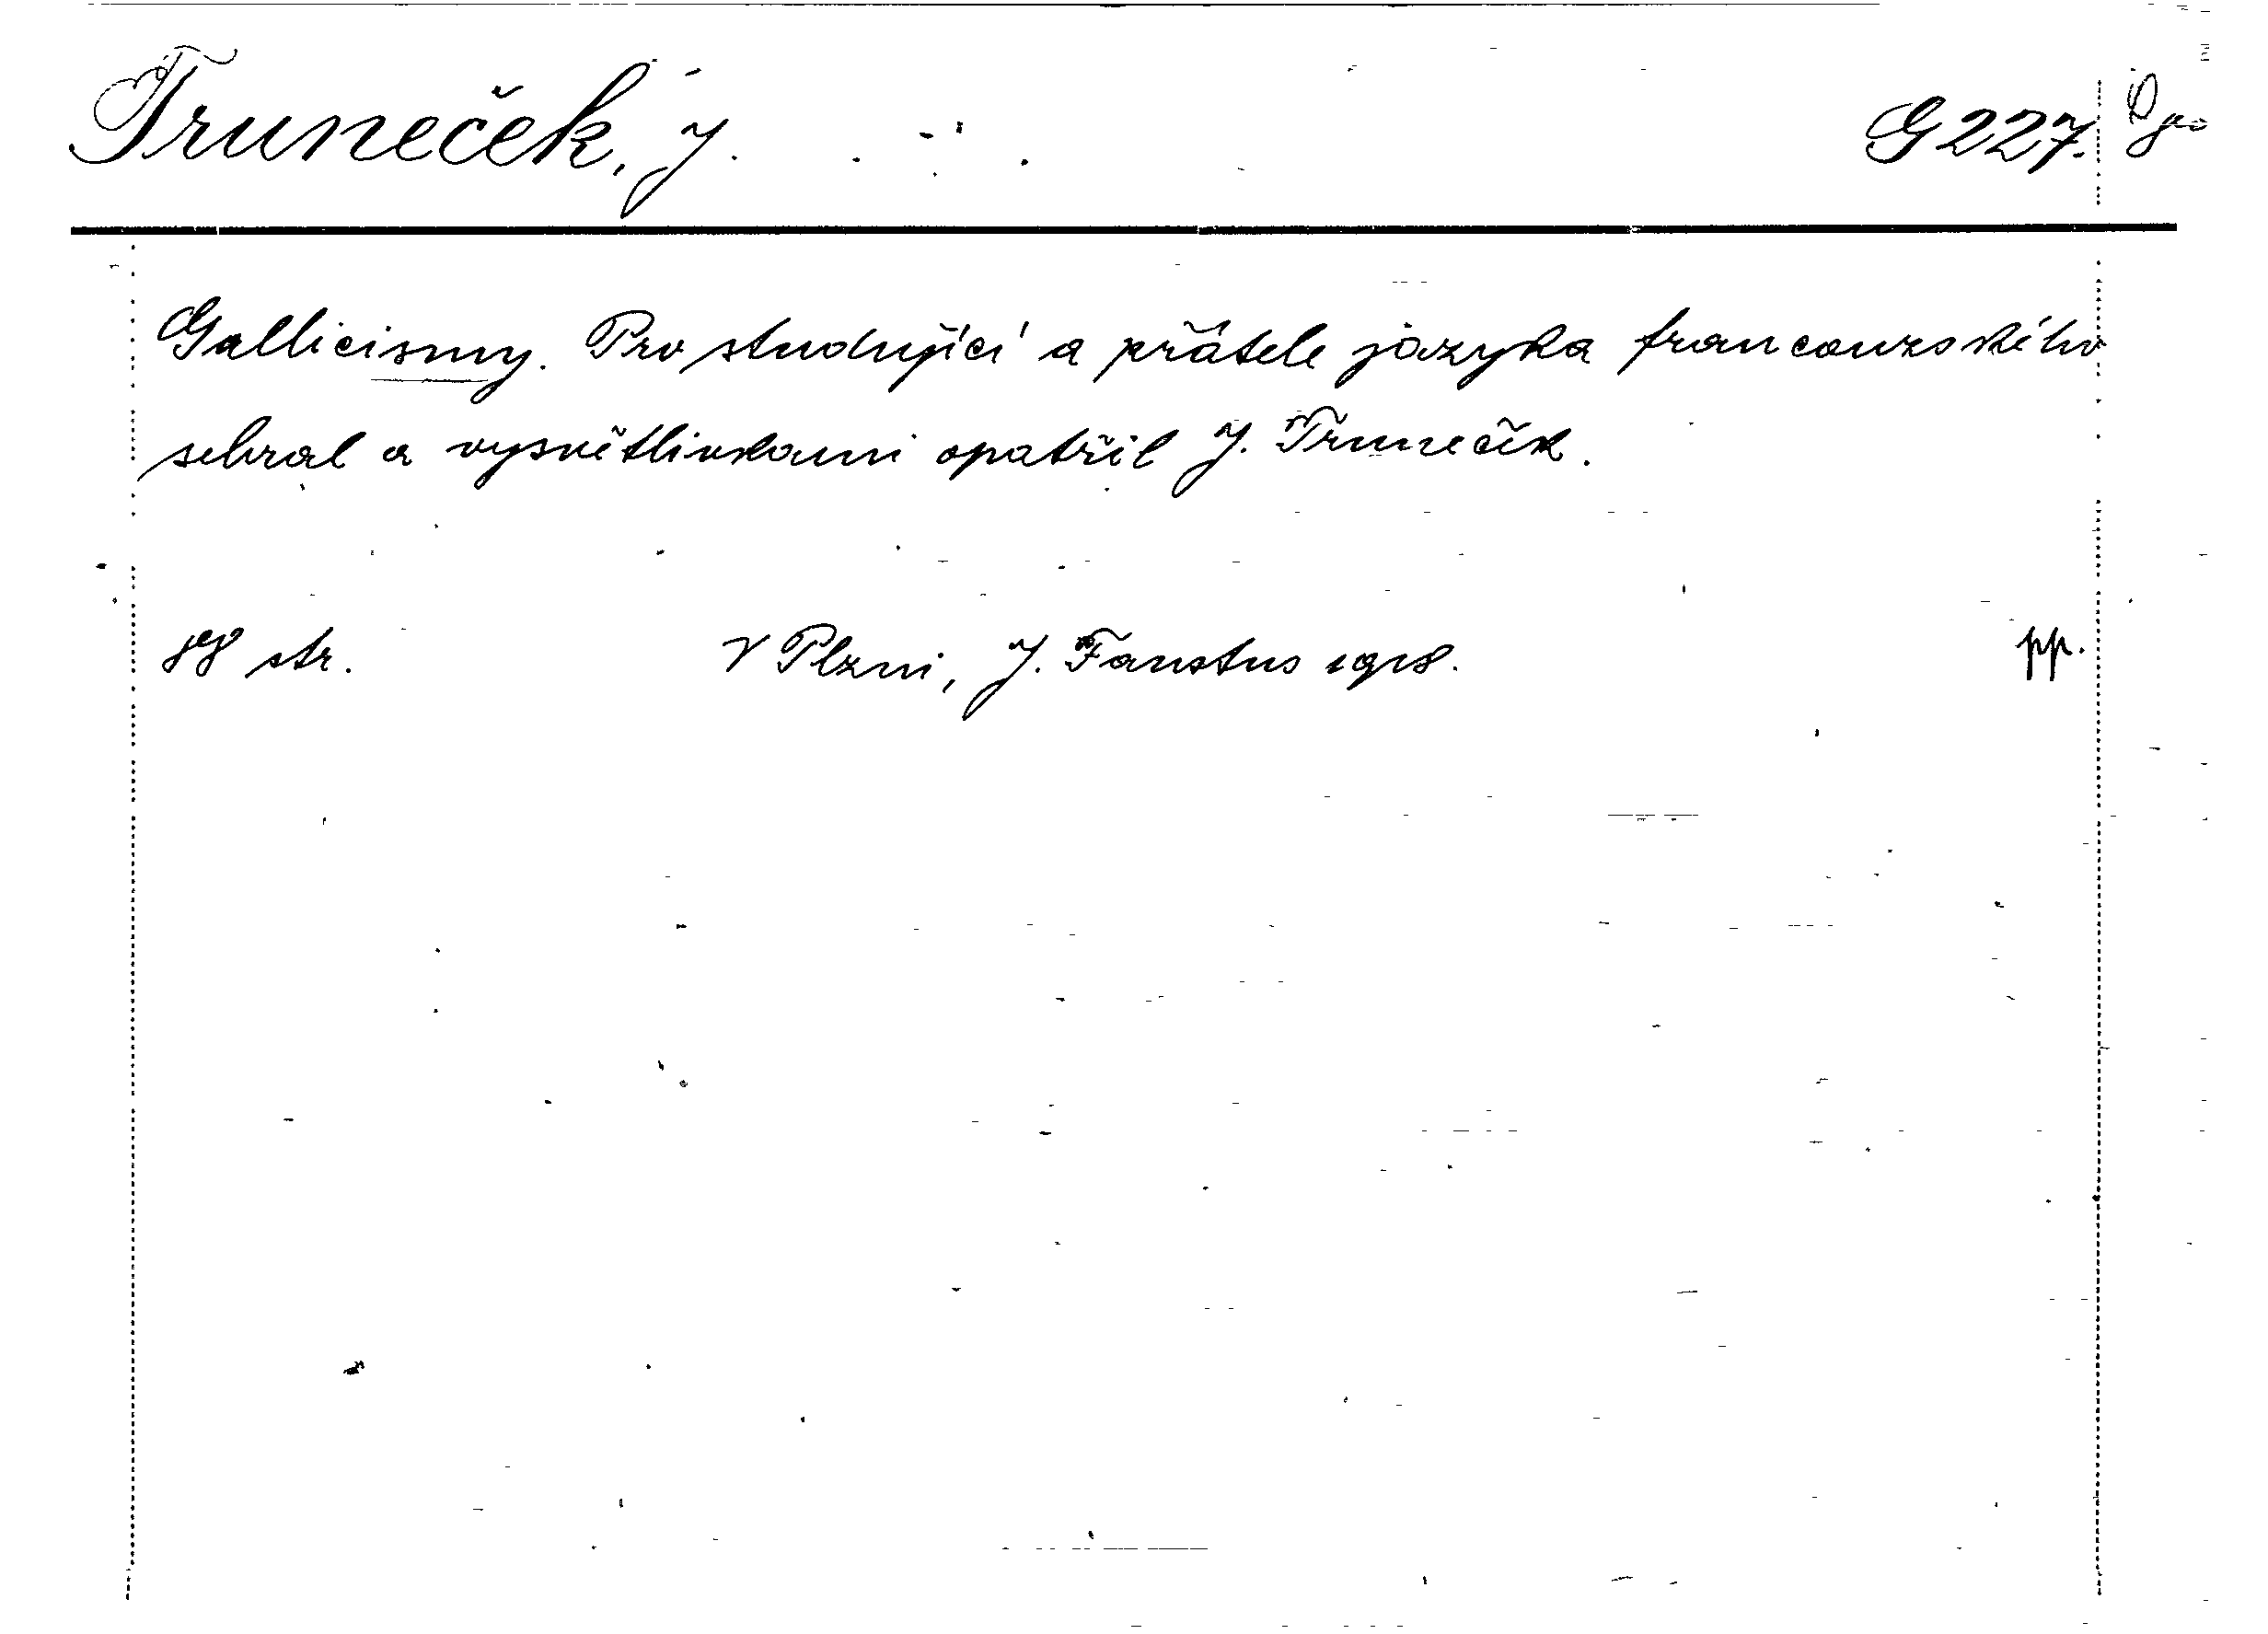 Truneček, J. G 227.
Gallicismy. Pro studující a přátele jazyka francouzského
sebral a vysvětlivkami opatřil J. Truneček.
88 str. V Plzni, J. Faustus 1918. pp.